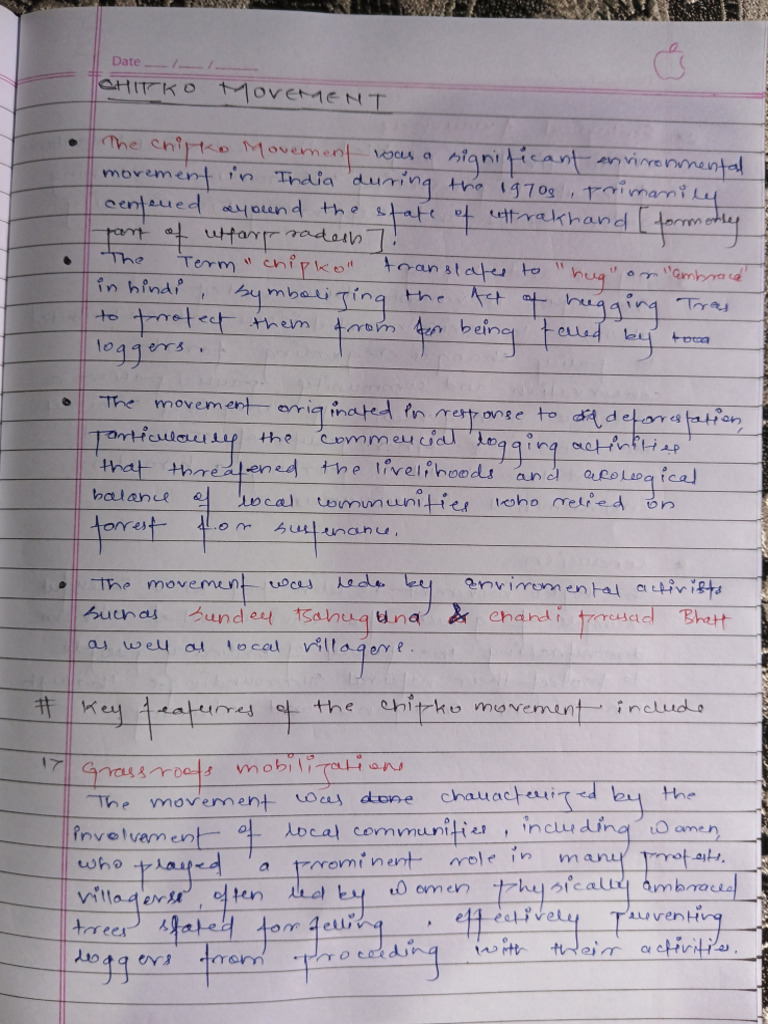 Date __/__/____
CHIPKO MOVEMENT
• The Chipko Movement was a significant environmental
movement in India during the 1970s, primarily
centered around the state of Uttrakhand [formerly
part of Uttarpradesh].
• The Term "chipko" translates to "hug" or "embrace"
in hindi, symbolizing the Act of hugging Trees
to protect them from being felled by
loggers.
• The movement originated in response to deforestation,
particularly the commercial logging activities
that threatened the livelihoods and ecological
balance of local communities who relied on
forest for sustenance.
• The movement was led by enviromental activists
such as Sunder Bahuguna & Chandi prasad Bhatt
as well as local villagers.
# Key features of the chipko movement include
1> Grassroots mobilizations
The movement was done characterized by the
involvement of local communities, including women,
who played a prominent role in many protests.
villagerss, often led by women physically embraced
trees slated for felling, effectively preventing
loggers from proceeding with their activities.